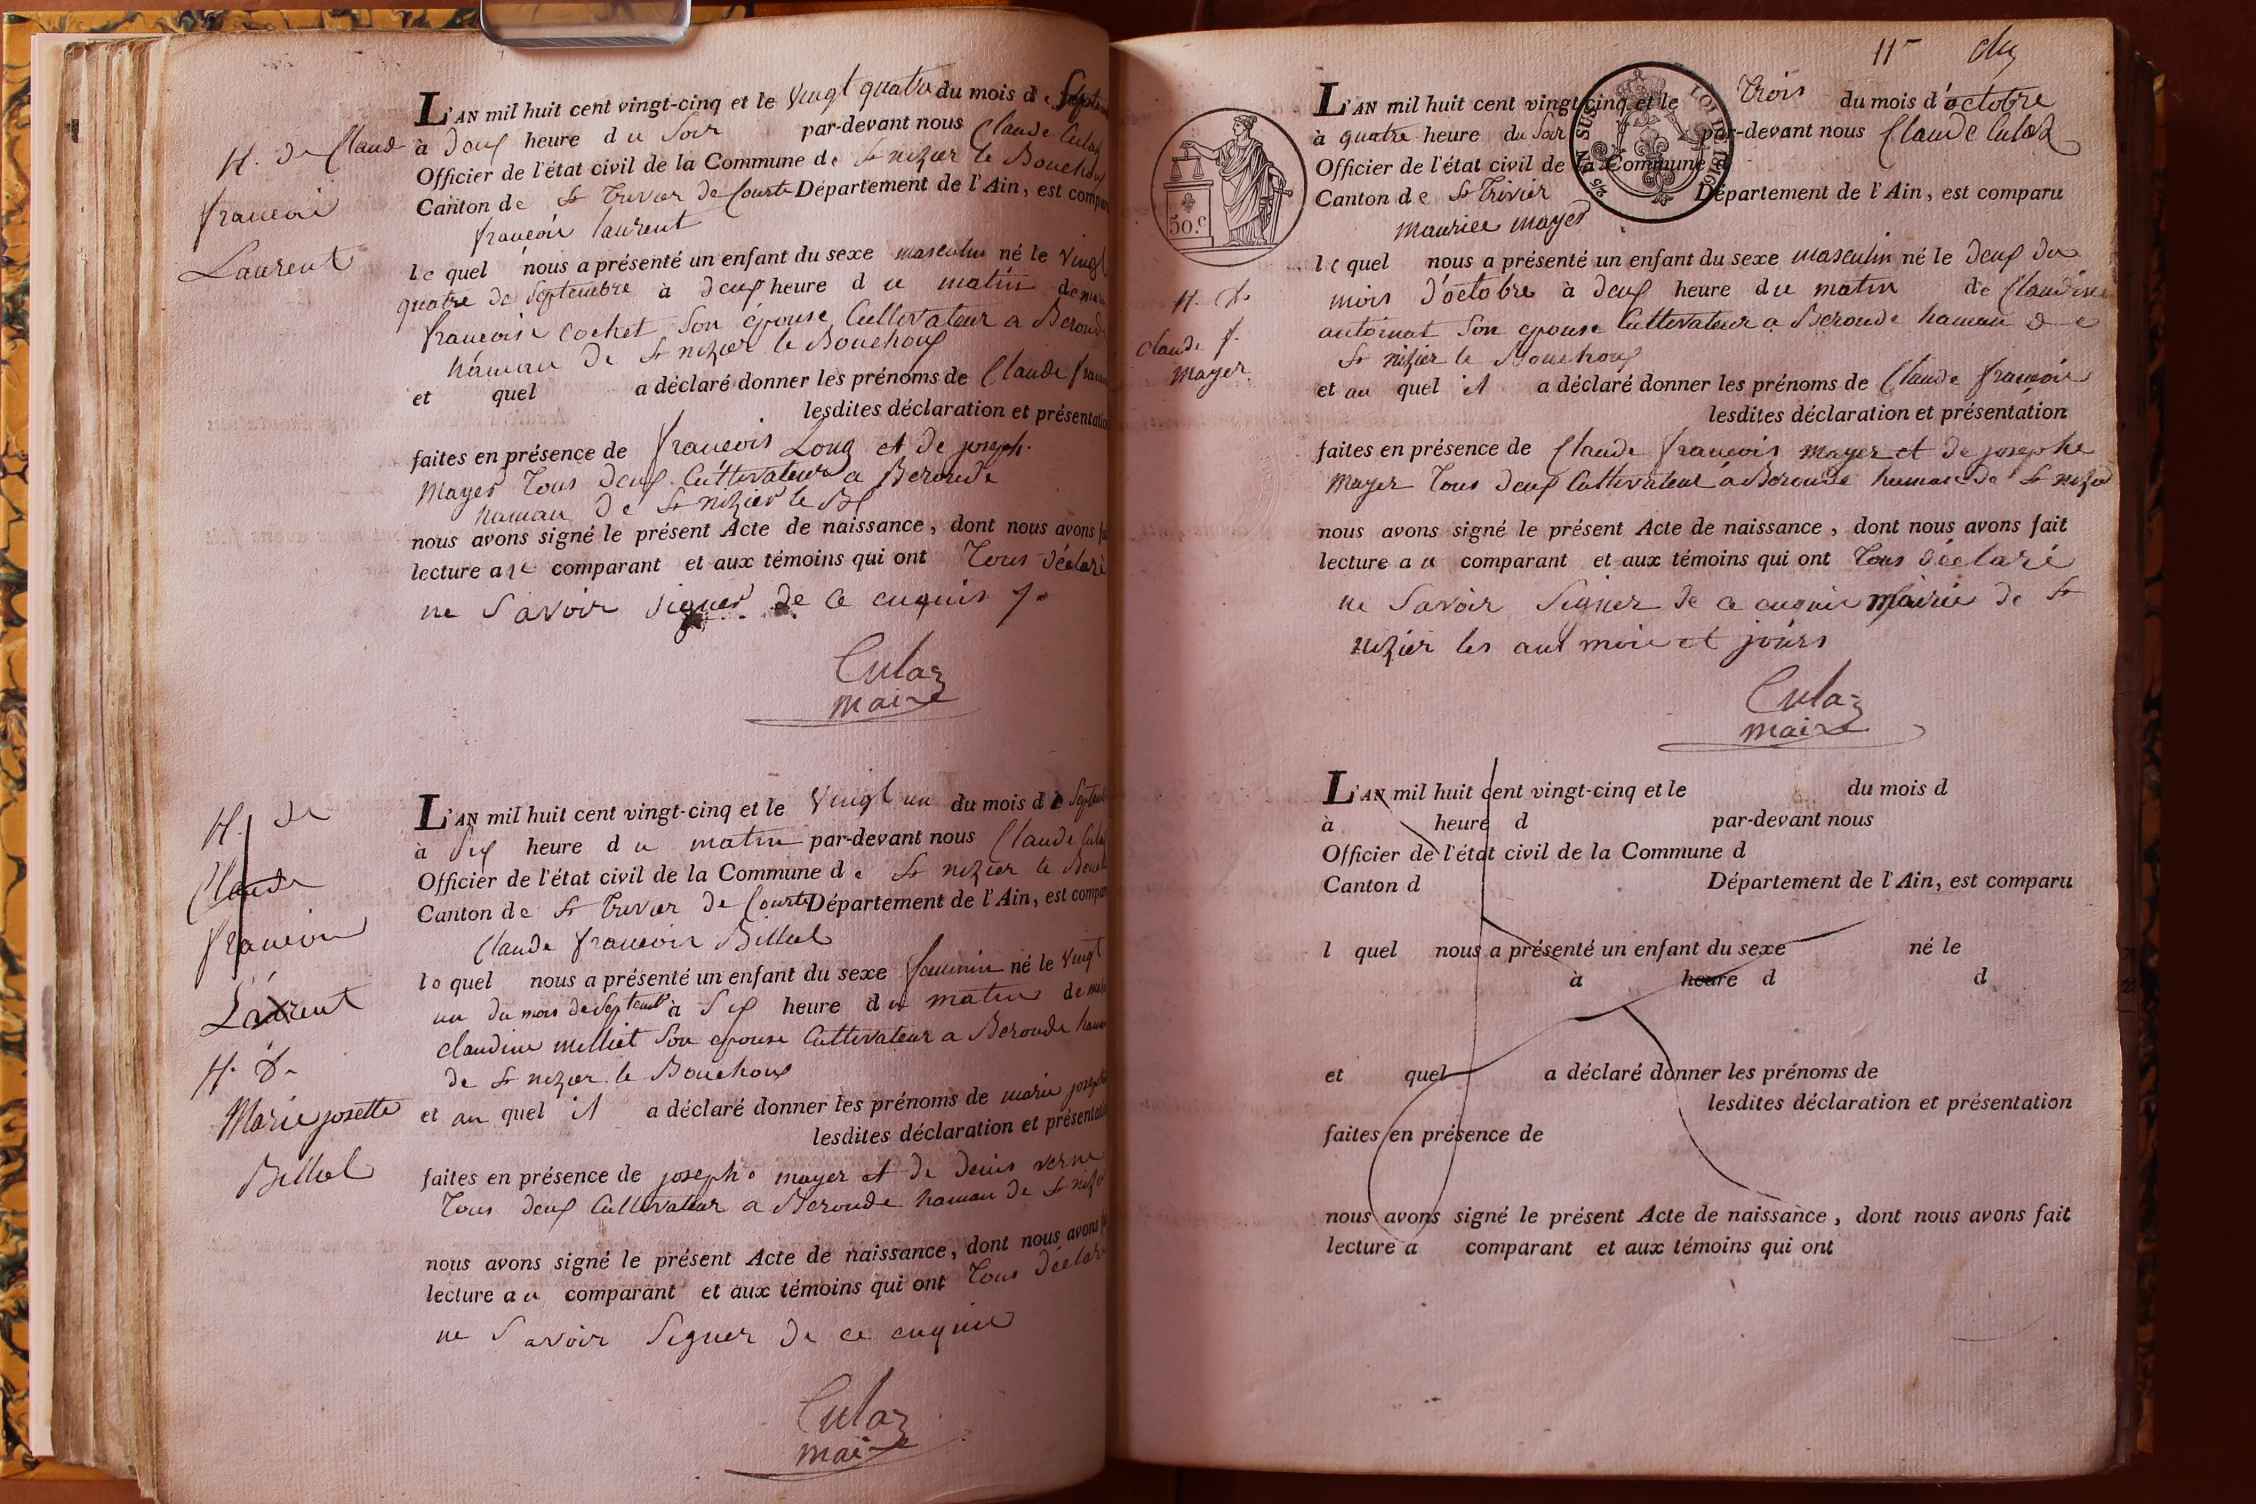 N. de Claude
françois
Laurent
L'AN mil huit cent vingt-cinq et le vingt quatre du mois de Septem
à deux heure du Soir par-devant nous Claude Culaz
Officier de l'état civil de la Commune de St nizier le Bouchoux
Canton de St Trivier de Courte Département de l'Ain, est compar
françois laurent
le quel nous a présenté un enfant du sexe masculin né le vingt
quatre de Septembre à deux heure du matin de
françoise cochet Son épouse Cultivateur a Beroude
hameau de St nizier le Bouchoux
et quel a déclaré donner les prénoms de Claude fran
lesdites déclaration et présentatio
faites en présence de françois Long et de joseph
Mayer Tous deux Cultivateur a Beroude
hamau de St nizier le B
nous avons signé le présent Acte de naissance, dont nous avons f
lecture au comparant et aux témoins qui ont Tous déclaré
ne Savoir signer de ce enquis
Culaz
maire
N. de
Claude
françois
Laurent
N. D.
Marie josette
Billiet
L'AN mil huit cent vingt-cinq et le vingt un du mois de Septem
à Six heure du matin par-devant nous Claude Cula
Officier de l'état civil de la Commune de St nizier le Bouch
Canton de St Trivier de Courte Département de l'Ain, est compar
Claude françois Billiet
le quel nous a présenté un enfant du sexe feminin né le vingt
un du mois de Septembre à Six heure du matin de
claudine milliet Son epouse Cultivateur a Beroude ham
de St nizier le Bouchoux
et au quel il a déclaré donner les prénoms de marie josep
lesdites déclaration et présentati
faites en présence de joseph mayer et de denis verne
Tous deux Cultivateur a Beroude hamau de St nizi
nous avons signé le présent Acte de naissance, dont nous avons f
lecture au comparant et aux témoins qui ont Tous déclar
ne Savoir Signer de ce enquis
Culaz
maire
11
50.c
N. D.
Claude f.
mayer
LOI DE 1816
L'AN mil huit cent vingt-cinq et le Trois du mois d'octobre
à quatre heure du Soir par-devant nous Claude Culaz
Officier de l'état civil de la Commune d
Canton de St Trivier Département de l'Ain, est comparu
maurice mayer
le quel nous a présenté un enfant du sexe masculin né le deux du
mois d'octobre à deux heure du matin de Claudine
antoinat Son epouse Cultivateur a Beroude hamau de
St nizier le Bouchoux
et au quel il a déclaré donner les prénoms de Claude françois
lesdites déclaration et présentation
faites en présence de Claude françois mayer et de josephe
mayer Tous deux Cultivateur a Beroude hamau de St nizie
nous avons signé le présent Acte de naissance, dont nous avons fait
lecture au comparant et aux témoins qui ont Tous déclaré
ne Savoir Signer de ce enquis mairie de St
nizier les ant mois et jours
Culaz
maire
L'AN mil huit cent vingt-cinq et le du mois d
à heure d par-devant nous
Officier de l'état civil de la Commune d
Canton d Département de l'Ain, est comparu
l quel nous a présenté un enfant du sexe né le
à heure d d
et quel a déclaré donner les prénoms de
lesdites déclaration et présentation
faites en présence de
nous avons signé le présent Acte de naissance, dont nous avons fait
lecture a comparant et aux témoins qui ont